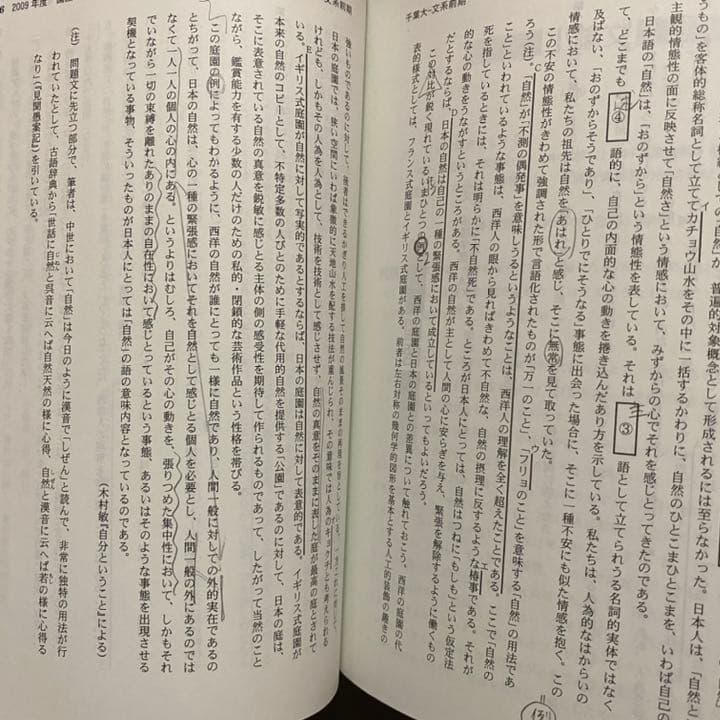 千葉大-文系前期
もの」を客体的総称名詞として立ててカチョウ山水をその中に一括するかわりに、自然のひとこまひとこまを、いわば自己の
主観的情態性の面に反映させて「自然さ」という情感において、みずからの心でそれを感じとってきたのである。
日本語の「自然」は、「おのずから」という情態性を表している。それは ③ 語として立てられうる名詞的実体ではなく
て、どこまでも ④ 語的に、自己の内面的な心の動きを捲き込んだあり方を示している。私たちは、人為的なはからいの
及ばない、「おのずからそうであり」、「ひとりでにそうなる」事態に出会った場合に、そこに一種不安にも似た情感を抱く。この
情感において、私たちの祖先は自然を「あはれ」と感じ、そこに無常を見て取っていた。
この不安の情態性がきわめて強調された形で言語化されたものが「万一のこと」、「フリョのこと」を意味する「自然」の用法であ
ろう(注)。「自然」が「不測の偶発事」を意味しうるというようなことは、西洋人の理解を全く超えたことである。ここで「自然の
こと」といわれているような事態は、西洋人の眼から見ればきわめて不自然な、自然の摂理に反するような椿事である。それが
死を指しているときには、それは明らかに「不自然死」である。ところが日本人にとっては、自然はつねに「もしも」という仮定法
的な心の動きをうながすというところがある。西洋の自然が主として人間の心に安らぎを与え、緊張を解除するように働くもの
だとするならば、日本の自然は自己の一種の緊張感において成立しているといってもよいだろう。
この対比が鋭く現れているいまひとつの例として、西洋の庭園と日本の庭園との差異について触れておこう。西洋の庭園の代
表的様式としては、フランス式庭園とイギリス式庭園がある。前者は左右対称の幾何学的図形を基本とする人工的装飾の趣きの
2009年度
文系前期
強いものであるのに対して、後者はできるかぎり人工を排して自然の風景そのままの再現を旨としている。
日本の庭園では、狭い空間にいわば象徴的に天地山水を配する技法が重んじられ、その意味では人為のキョクチとも考えられる
けれども、しかもその人為を人為として、技術を技術として感じさせず、自然の真意をそのままに表した庭が最高の庭とされて
いる。イギリス式庭園が自然に対して写実的であるとするならば、日本の庭園は自然に対して表意的である。イギリス式庭園が
本来の自然のコピーとして、不特定多数の人びとのために手軽な代用的自然を提供する「公園」であるのに対して、日本の庭は、
そこに表意されている自然の真意を鋭敏に感じとる主体の側の感受性を期待して作られるものであって、したがって当然のこと
ながら、鑑賞能力を有する少数の人だけのための私的、閉鎖的な芸術作品という性格を帯びる。
この庭園の例によってもわかるように、西洋の自然が誰にとっても一様に自然であり、人間一般に対しての外的実在であるの
とちがって、日本の自然は、心の一種の緊張感においてそれを自然として感じとる個人を必要とし、人間一般の外にあるのでは
なくて一人一人の個人の心の内にある。というよりはむしろ、自己がその心の動きを、張りつめた集中性において、しかもそれ
でいながら一切の束縛を離れたありのままの自在性において感じとっているという事態、あるいはそのような事態を出現させる
契機となっている事物、そういったものが日本人にとっては「自然」の語の意味内容となっているのである。
(木村敏『自分ということ』による)
(注) 問題文に先立つ部分で、筆者は、中世において「自然」は今日のように漢音で「しぜん」と読んで、非常に独特の用法が行
われていたとして、古語辞典から「世話に自然と呉音に云へば自然天然の様に心得、自然と漢音に云へば若の様に心得る
なり」(『見聞愚案記』)を引いている。